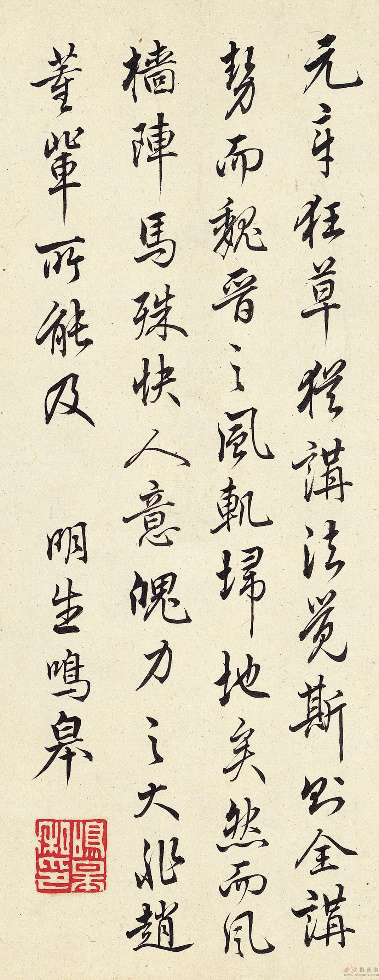 元章狂草猶講法覺斯則全講
勢而魏晋之風軌埽地矣然而风
檣陣馬殊快人意魄力之大非趙
董輩所能及
明生鳴皋